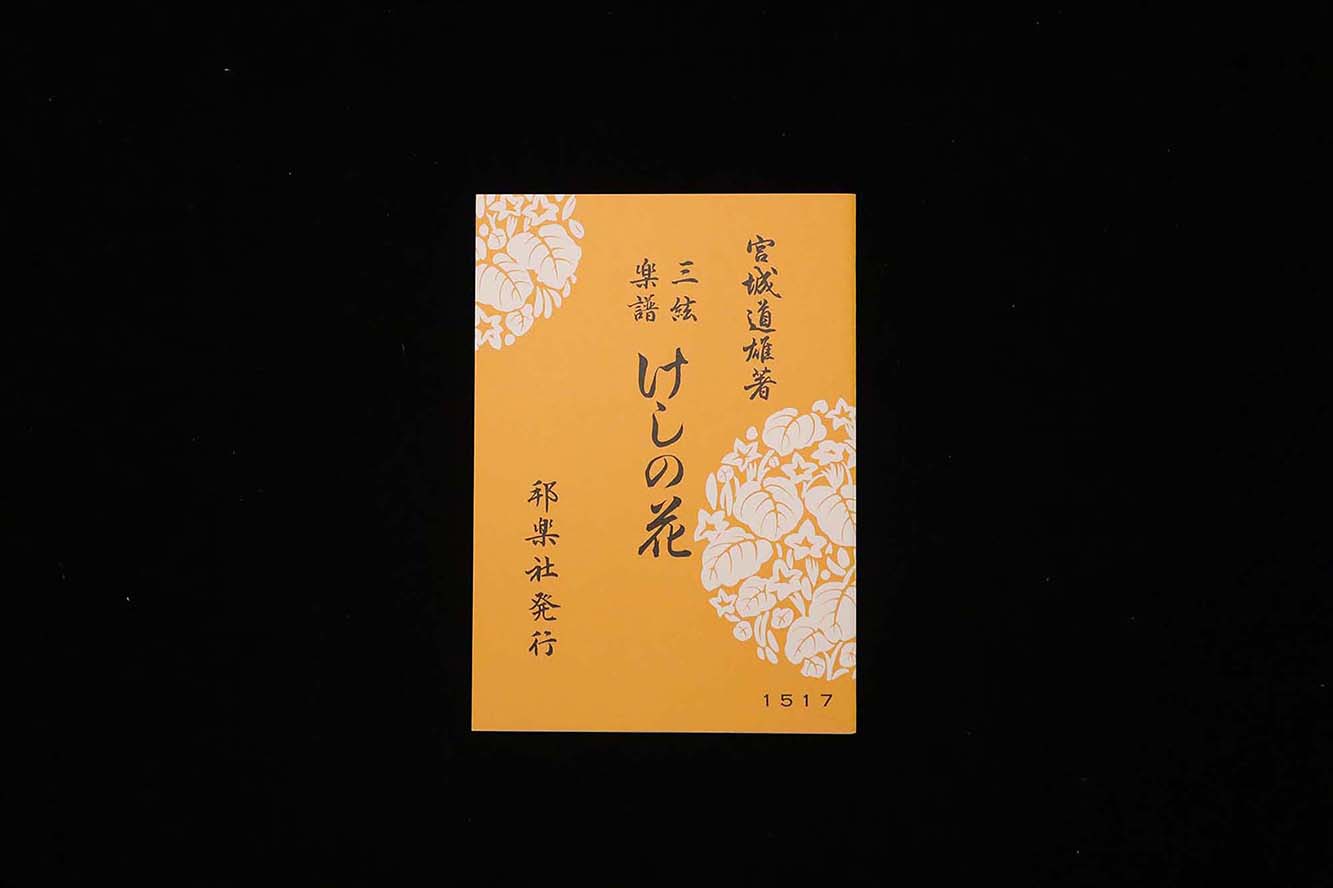 宮城道雄著
三絃
楽譜
けしの花
邦楽社発行
1517